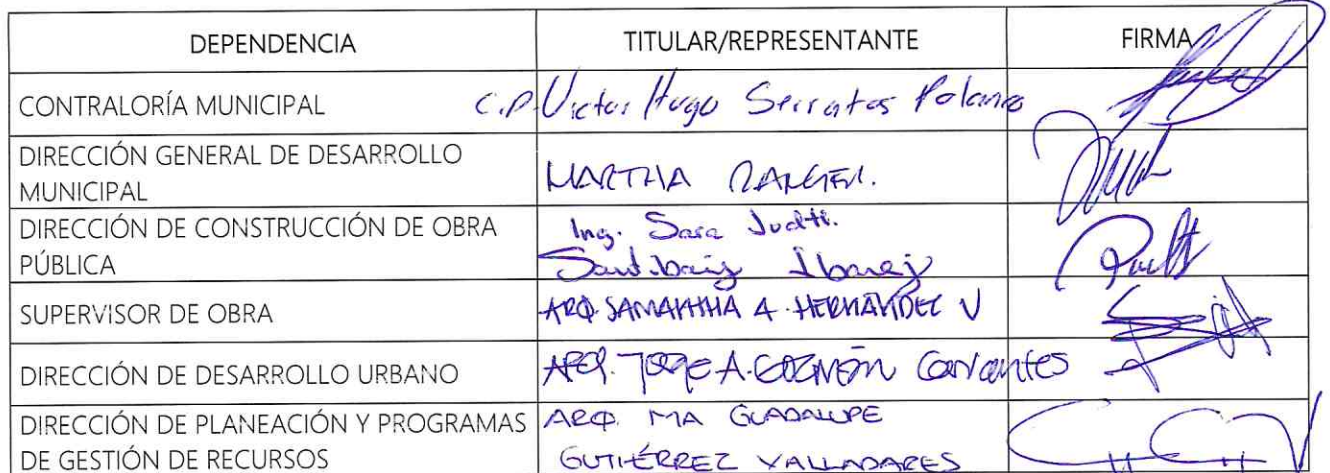 DEPENDENCIA TITULAR/REPRESENTANTE FIRMA
CONTRALORÍA MUNICIPAL C.P. Victor Hugo Serratos Polanco
DIRECCIÓN GENERAL DE DESARROLLO
MUNICIPAL
MARTHA RANGEL.
DIRECCIÓN DE CONSTRUCCIÓN DE OBRA
PÚBLICA
Ing. Sara Judith.
Santibañez Ibarez
SUPERVISOR DE OBRA ARQ. SAMANTHA A. HERNÁNDEZ V
DIRECCIÓN DE DESARROLLO URBANO ARQ. JORGE A. GUZMÁN Cervantes
DIRECCIÓN DE PLANEACIÓN Y PROGRAMAS
DE GESTIÓN DE RECURSOS
ARQ. MA GUADALUPE
GUTIÉRREZ VALLADARES